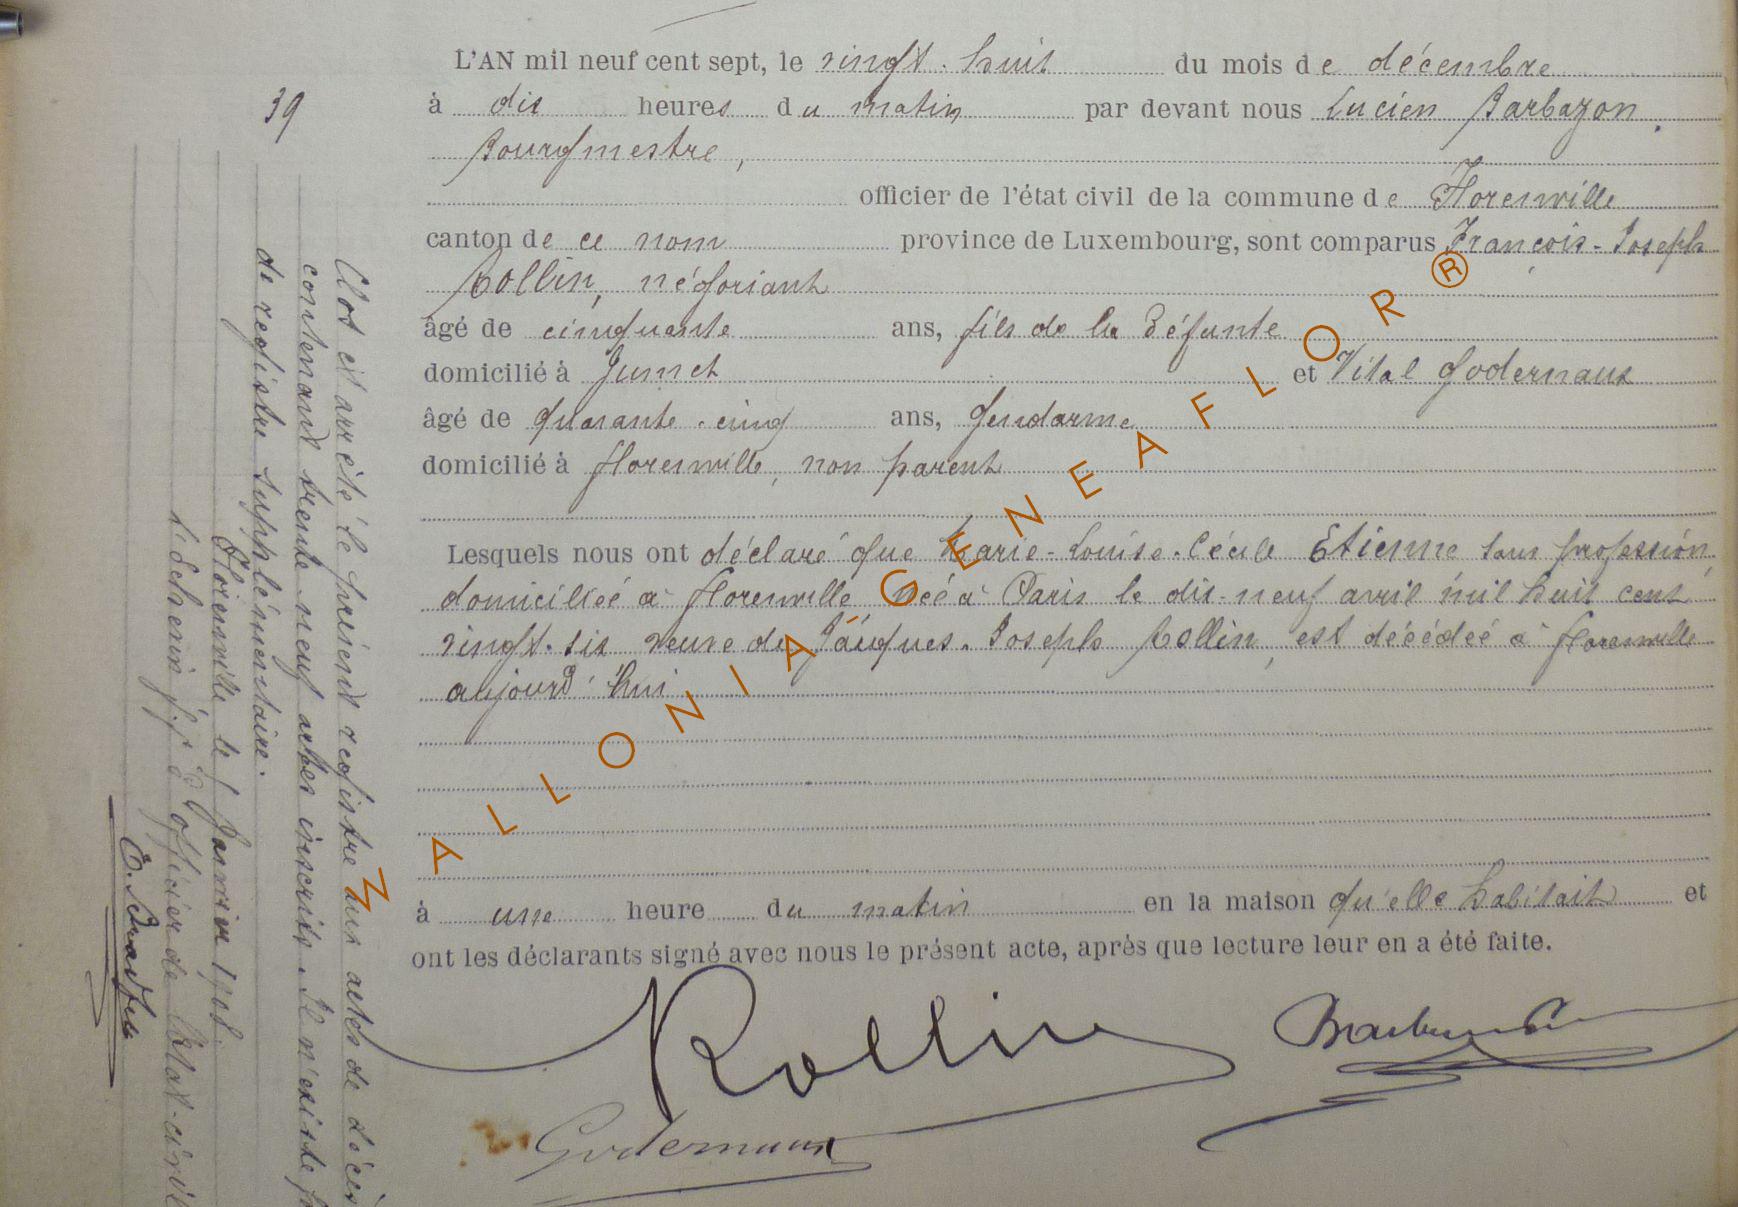 39
L'AN mil neuf cent sept, le vingt-huit du mois de décembre
à dix heures du matin par devant nous Lucien Barbazon,
Bourgmestre,
officier de l'état civil de la commune de Florenville
canton de ce nom province de Luxembourg, sont comparus François-Joseph
Rollin, négociant
âgé de cinquante ans, fils de la défunte
domicilié à Jumet et Vital Godernaux
âgé de quarante-cinq ans, Gendarme
domicilié à Florenville, non parent
Lesquels nous ont déclaré que Marie-Louise-Cécile Etienne sans profession,
domiciliée à Florenville, née à Paris le dix-neuf avril mil huit cent
vingt-six veuve de Jacques-Joseph Rollin, est décédée à Florenville
aujourd'hui
à une heure du matin en la maison qu'elle habitait et
ont les déclarants signé avec nous le présent acte, après que lecture leur en a été faite.
Rollin
Godernaux
Clot et arrêté le présent registre aux actes de décès
contenant trente neuf actes inscrits. Il n'existe
de registre supplémentaire.
Florenville le 1 Janvier 1908.
L'Echevin f.f. d'officier de l'état-civil
WALLONIA GENEAFLOR®